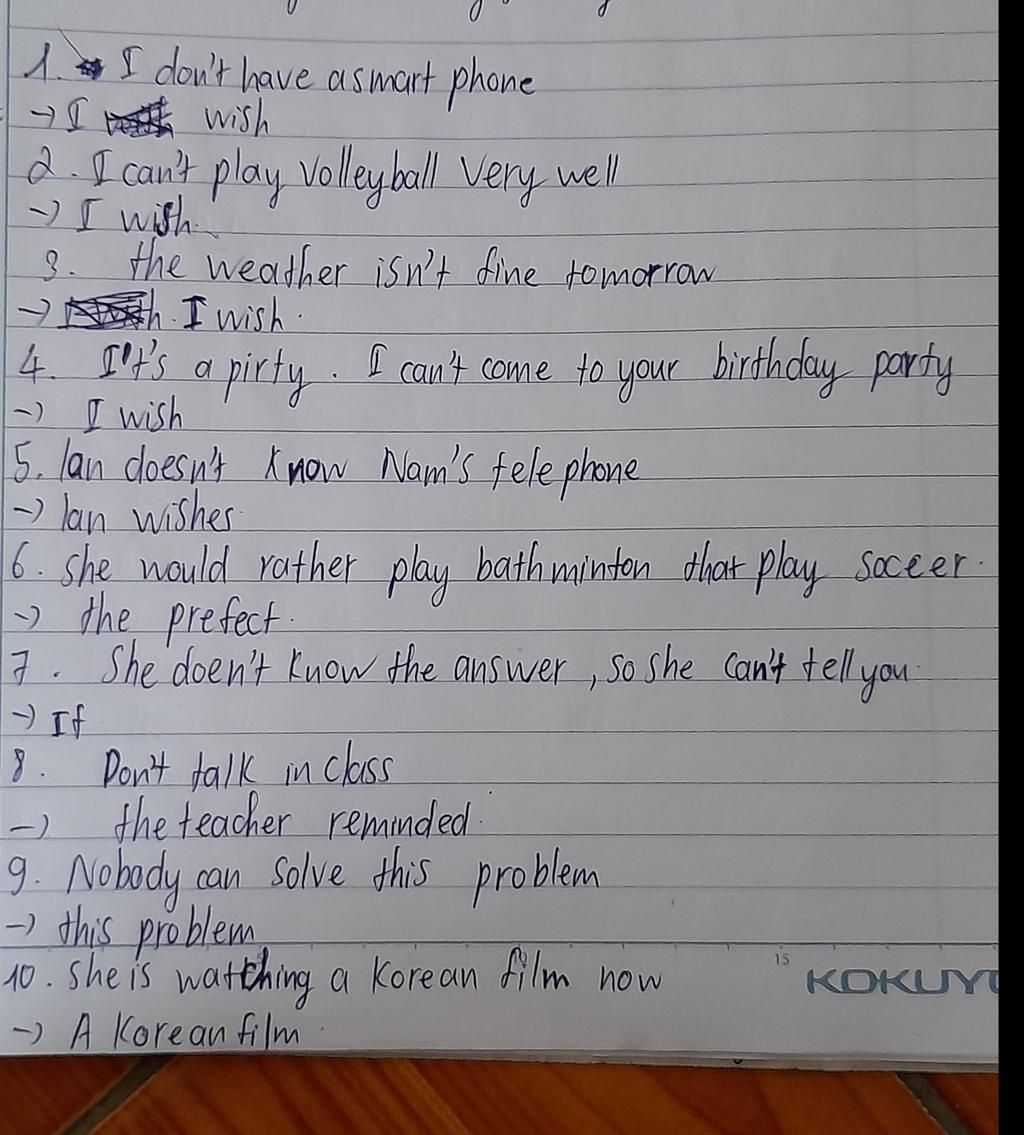 1. I don't have a smart phone
→ I wish
2. I can't play volleyball very well
→ I wish.
3. the weather isn't fine tomorrow
→ I wish.
4. It's a pirty. I can't come to your birthday party
→ I wish
5. lan doesn't know Nam's telephone
→ lan wishes.
6. she would rather play bathminton that play soceer.
→ the prefect.
7. She doen't know the answer, so she can't tell you.
→ If
8. Don't talk in class
→ the teacher reminded.
9. Nobody can solve this problem
→ this problem
15
10. she is watching a Korean film now
KOKUYO
→ A Korean film.